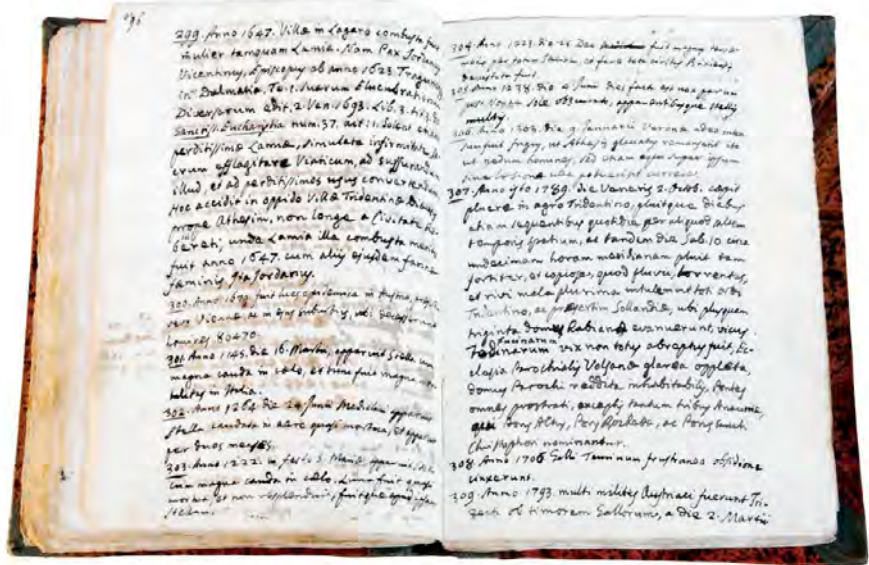 299. Anno 1647. Villæ in Lagaro combusta fuit
mulier tamquam Lamia. Nam Pax Jordany
Vicentinus, Episcopus ab anno 1623 Tragurien
in Dalmatia, To. 1. suarum Elucubrationum
Diversarum edit. 2. Ven. 1693. Lib. 3. tit. 3. de
Sanctiss. Eucharystia num. 37. ait: Solent etiam
perditissimæ Lamiæ, simulata infirmitate, sa-
crum efflagitare Viaticum, ad suffurandum
illud, et ad perditissimos usus convertendum.
Hoc accidit in oppido Villæ Tridentinæ Diœcesis
prope Athesim, non longe a Civitate Ro-
bereti; unde Lamia illa combusta merito
fuit anno 1647. cum aliis ejusdem farinæ
fæminis. Ita Jordanus.
300. Anno 1679. fuit lues epidemica in Austria, præ-
Viennæ ac in ejus suburbiis, ubi decesserunt
homines 80470.
301. Anno 1145. die 16. Martii, apparuit Stella cum
magna cauda in cœlo, et tunc fuit magna mor-
talitas in Italia.
302. Anno 1264. die 24. Junii Mediolani apparuit
Stella caudata in aere quasi mortua, et apparuit
per duos menses.
303. Anno 1222. in festo S. Mariæ apparuit Stel-
cum magna cauda in cœlo. Luna fuit quasi
mortua, et non resplenduit, fuitque ipsa
stellam.
304. Anno 1223. die 25. Dec. fuit magnus terræ-
motus per totam Italiam, et fere tota civitas Brixiensis
devastata fuit.
305. Anno 1238. die 4 Junii dies facta est nox per unum
usque Nonam Sole obscurato, apparentibusque stellis
multis.
306. Anno 1303. die 9. Januarii Veronæ adeo ma-
fuit frigus, ut Athesis glaciatus remanserit ita
ut nedum homines, sed etiam super ipsum
sine læsione ulla potuerint currere.
307. Anno isto 1789. die Veneris 2. Octob. cœpit
pluere in agro Tridentino, pluitque diebus
etiam sequentibus quotidie per aliquod saltem
temporis spatium, ac tandem die Sab. 10 circa
undecimam horam meridianam pluit tam
fortiter, et copiose, quod fluvii, torrentes,
et rivi mala plurima intulerunt toti agro
Tridentino, ac præsertim Sollandiæ, ubi plusquam
triginta domus Rabiensis evanuerunt, vicus
Fucinarum
vix non totus abreptus fuit, Ec-
clesia Parochialis Volsanæ glarea oppleta,
domus Parochi reddita inhabitabilis, Pontes
omnes prostrati, exceptis tantum tribus Anauniæ,
qui Pons Altus, Pons Rochetæ, ac Pons Sancti
Christophori nominantur.
308. Anno 1706 Galli Taurinum frustranea obsidione
cinxerunt.
309. Anno 1793. multi milites Austriaci fuerunt Tri-
denti ob timorem Gallorum, a die 2. Martii